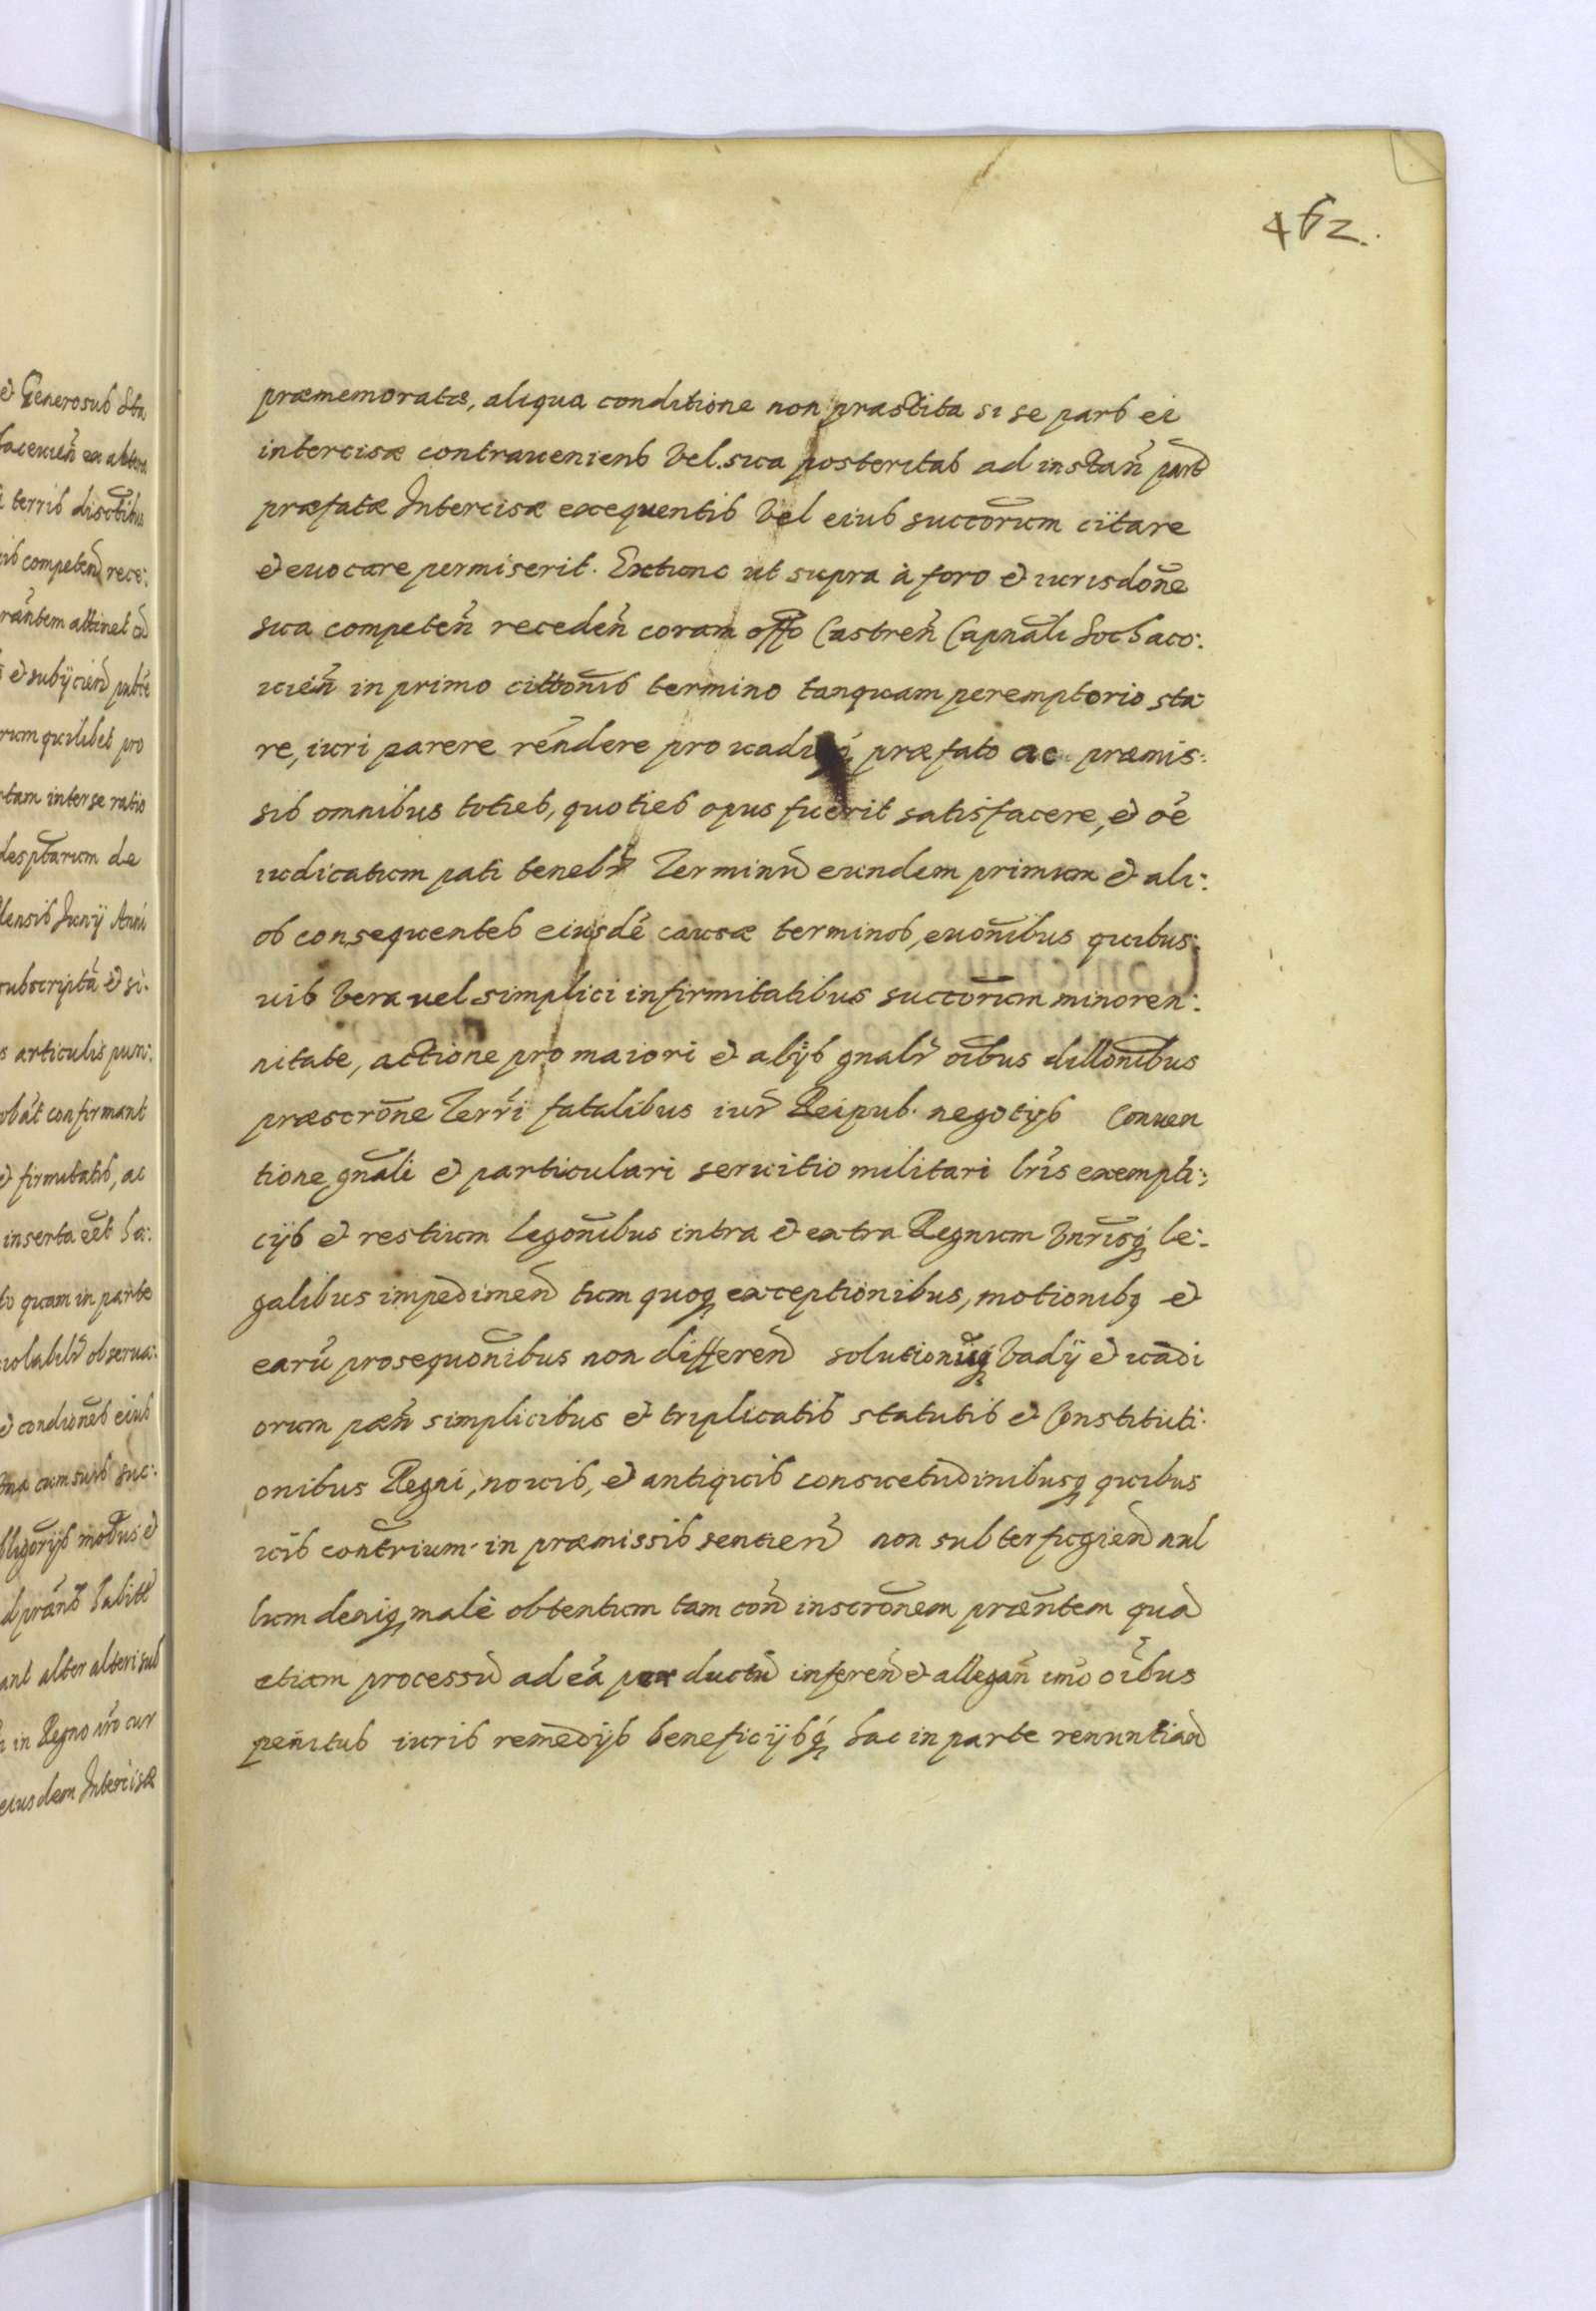 462.
præmemoratæ, aliqua conditione non præstita si se pars ei
intercisæ contraueniens vel sua posteritas ad instan̄ part̄
præfatæ Intercisæ exequentis vel eius succorum citare
et euocare permiserit. Extunc ut supra à foro et iurisdōne
sua competen̄ receden̄ coram offo Castren̄ Capnāli Sochaco:
uien̄ in primo cittōnis termino tanquam peremptorio sta
re, iuri parere rendere pro uadioq́ præfato ac præmis:
sis omnibus toties, quoties opus fuerit satisfacere, et oē
iudicatum pati tenebr̄ Terminū eundem primum et ali:
os consequentes eiusdē causæ terminos, euōnibus quibus:
uis vera uel simplici infirmitatibus succorum minoren:
nitate, actione pro maiori et alijs gnalr̄ oībus dillōnibus
præscrōne Terrī fatalibus iur̄ Reipub. negotijs Conuen
tione gnāli et particulari seruitio militari lr̄is exempti:
cijs et restium legōnibus intra et extra Regnum vnrīsq́ le:
galibus impedimen̄ tum quoq́ exceptionibus, motionibq́ et
earū prosequōnibus non differen̄ solutioniq́ vadij et uadi
orum pæn̄ simplicibus et triplicatis statutis et Constituti:
onibus Regni, nouis, et antiquis consuetudinibusq́ quibus
uis contrīum in præmissis sentien̄ non subterfugien̄ nul
lum deniq́ malè obtentum tam con̄ inscrōnem præntem quā
etiam processū ad eā per ductū inferen̄ et allegan̄ imō oībus
penitus iuris remedijs beneficijsq́ hac in parte renuntian̄
et Generosus Sta
i terris distctibus
is competen̄ rece:
rum quilibet pro
tam inter se ratio
desptarum de
lensis Junij Anni
subscriptā et si:
s articulis pun:
obāt confirmant
et firmitatis, ac
inserta eēt ha:
to quam in parte
iolabilr̄ obserua:
et condiōnes eius
vna cum suis suc:
ant alter alteri sub
i in Regno nrō cur
eiusdem Intercisæ